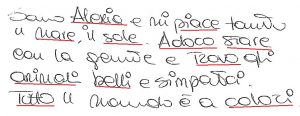 Sono Alexia e mi piace tanto
il mare, il sole. Adoro stare
con la gente e trovo gli
animali belli e simpatici.
Tutto il mondo è a colori